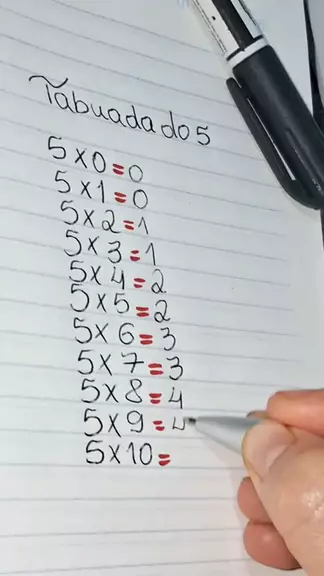 Tabuada do 5
5 x 0 = 0
5 x 1 = 0
5 x 2 = 1
5 x 3 = 1
5 x 4 = 2
5 x 5 = 2
5 x 6 = 3
5 x 7 = 3
5 x 8 = 4
5 x 9 = 4
5 x 10 =